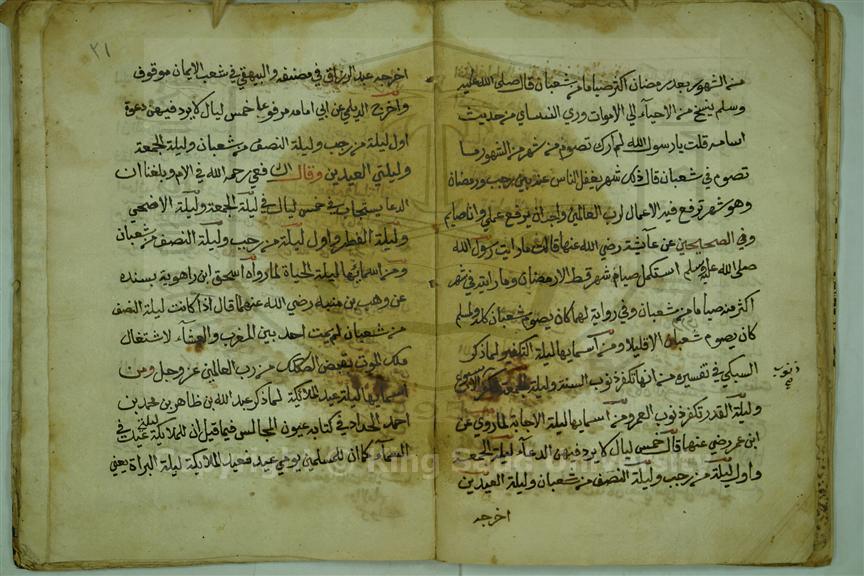 من الشهور بعد رمضان أكثر صياما من شعبان قال صلى الله عليه
وسلم ينسخ من الاحياء الى الاموات وروى النساي من حديث
اسامه قلت يا رسول الله لم ارك تصوم من شهر من الشهور ما
تصوم في شعبان قال ذلك شهر يغفل الناس عنه بين رجب ورمضان
وهو شهر ترفع فيه الاعمال لرب العالمين واحب ان يرفع عملي وانا صايم
وفي الصحيحين عن عائيشة رضي الله عنها قالت ما رايت رسول الله
صلى الله عليه وسلم استكمل صيام شهر قط الا رمضان وما رايته في شهر
اكثر منه صياما من شعبان وفي رواية لهما كان يصوم شعبان كله ولمسلم
كان يصوم شعبان الا قليلا ومن اسمايها ليلة التكفير لما ذكر
السبكي في تفسيره من انها تكفر ذنوب السنة وليلة الجمعة تكفر الاسبوع
ذنوب
صح
وليلة القدر تكفر ذنوب العمر ومن اسمايها ليلة الاجابة لما روى عن
ابن عمر رضي عنهما قال خمس ليال لا يرد فيهن الدعاء ليلة الجمعة
واول ليلة من رجب وليلة النصف من شعبان وليلة العيدين
اخرجه
٢١
اخرجه عبد الرزاق في مصنفه والبيهقي في شعب الايمان موقوف
واخرج الديلمي عن ابي امامه مرفوعا خمس ليال لا يرد فيهن دعوة
اول ليلة من رجب وليلة النصف من شعبان وليلة الجمعة
وليلتي العيدين وقال الشافعي رحمه الله في الام وبلغنا ان
الدعا يستجاب في خمس ليال في ليلة الجمعة وليلة الاضحي
وليلة الفطر واول ليلة من رجب وليلة النصف من شعبان
ومن اسمائها ليلة الحياة لما رواه اسحق ابن راهوية بسنده
عن وهب بن منبه رضي الله عنهما قال اذا كانت ليلة النصف
من شعبان لم يمت احد بين المغرب والعشاء لاشتغال
ملك الموت بقبض الصكك من رب العالمين عز وجل ومن
اسمايها ليلة عيد الملائكة لما ذكر عبد الله بن طاهر بن محمد بن
احمد الحداد في كتابه عيون المجالس فيما قيل ان للملائكة ليلتي عيد في
السماء كما ان للمسلمين يومي عيد فعيد الملائكة ليلة البراة يعني